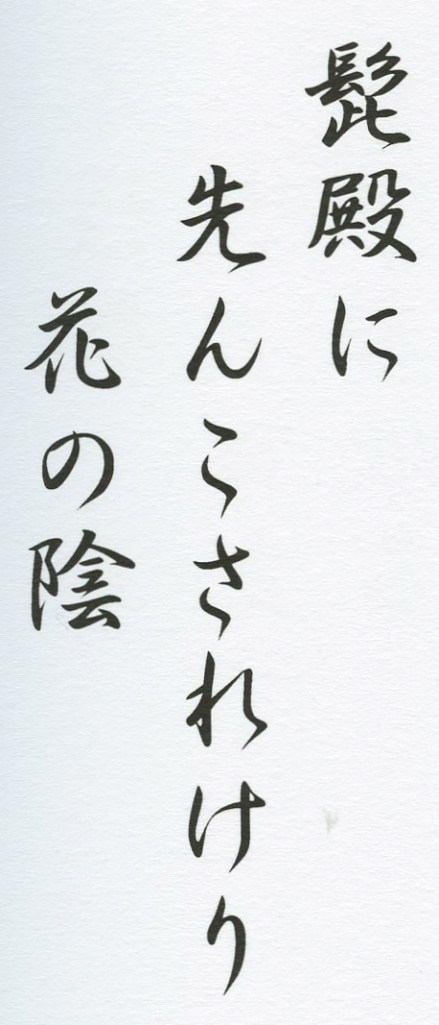 髭殿に
先んこされけり
花の陰